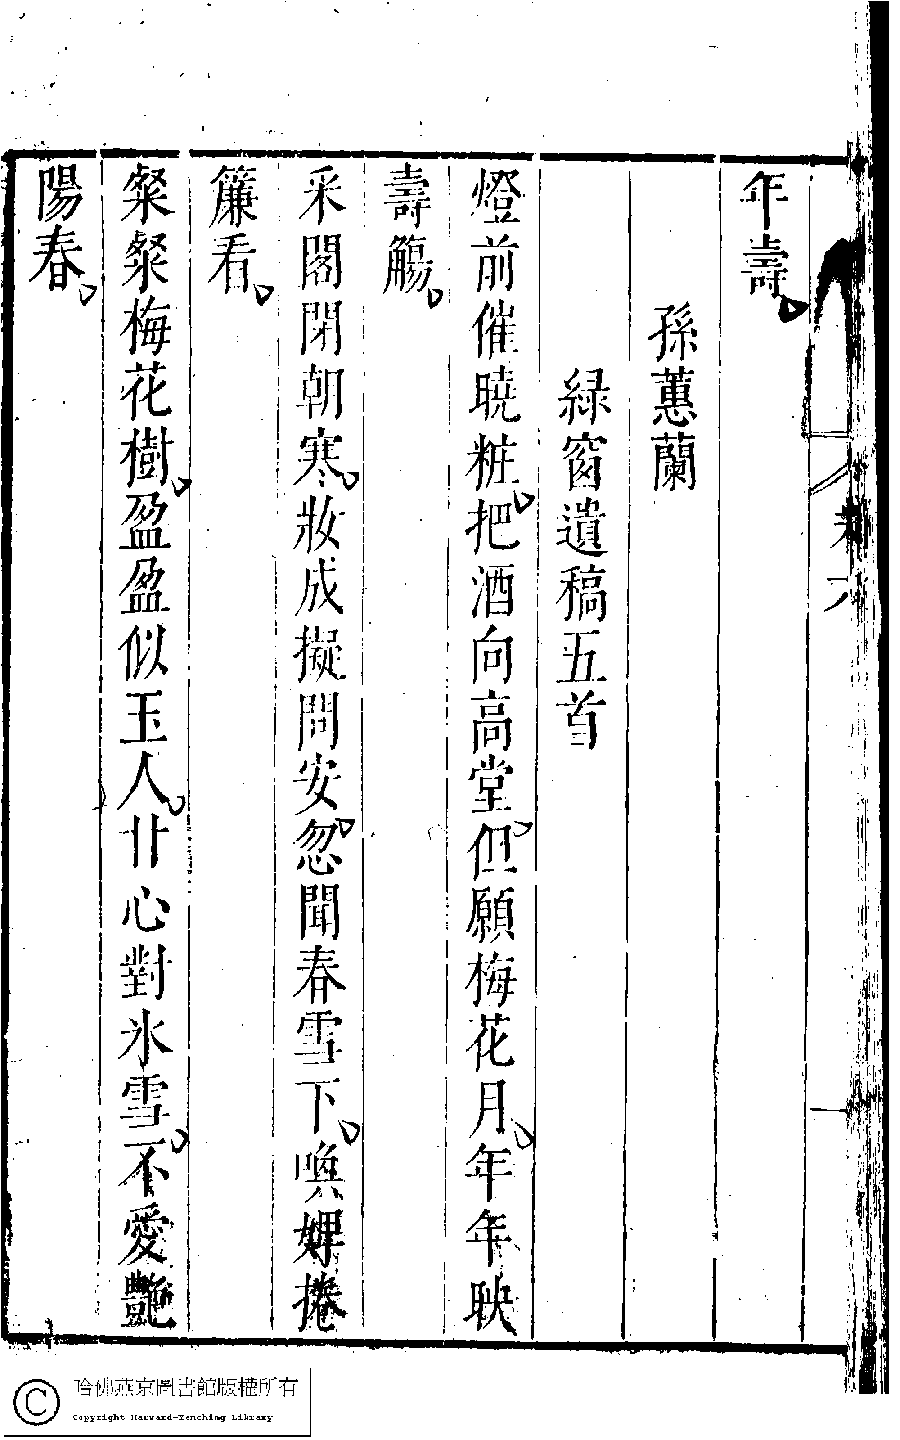 年壽
孫蕙蘭
緑窗遺稿五首
燈前催曉粧把酒向高堂但願梅花月年年映
壽觴
采閣閉朝寒妝成擬問安忽聞春雪下喚婢捲
簾看
粲粲梅花樹盈盈似玉人甘心對氷雪不愛艶
陽春
哈佛燕京圖書館版權所有
Copyright Harvard-Yenching Library